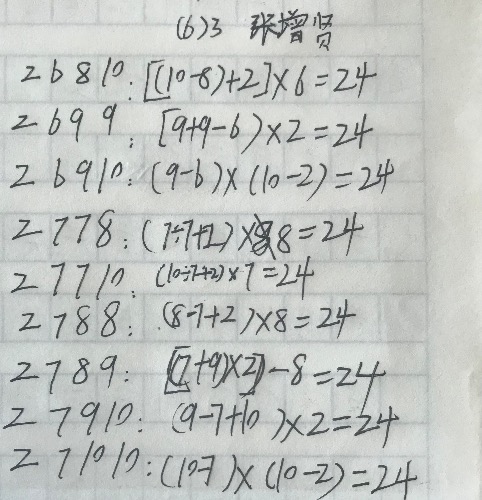 (6)3 张增贤
2 6 8 10: [(10-8)+2]×6=24
2 6 9 9: [9+9-6)×2=24
2 6 9 10: (9-6)×(10-2)=24
2 7 7 8: (7÷7+2)×8=24
2 7 7 10: (10÷7+2)×7=24
2 7 8 8: (8-7+2)×8=24
2 7 8 9: [(7+9)×2]-8=24
2 7 9 10: (9-7+10)×2=24
2 7 10 10: (10-7)×(10-2)=24